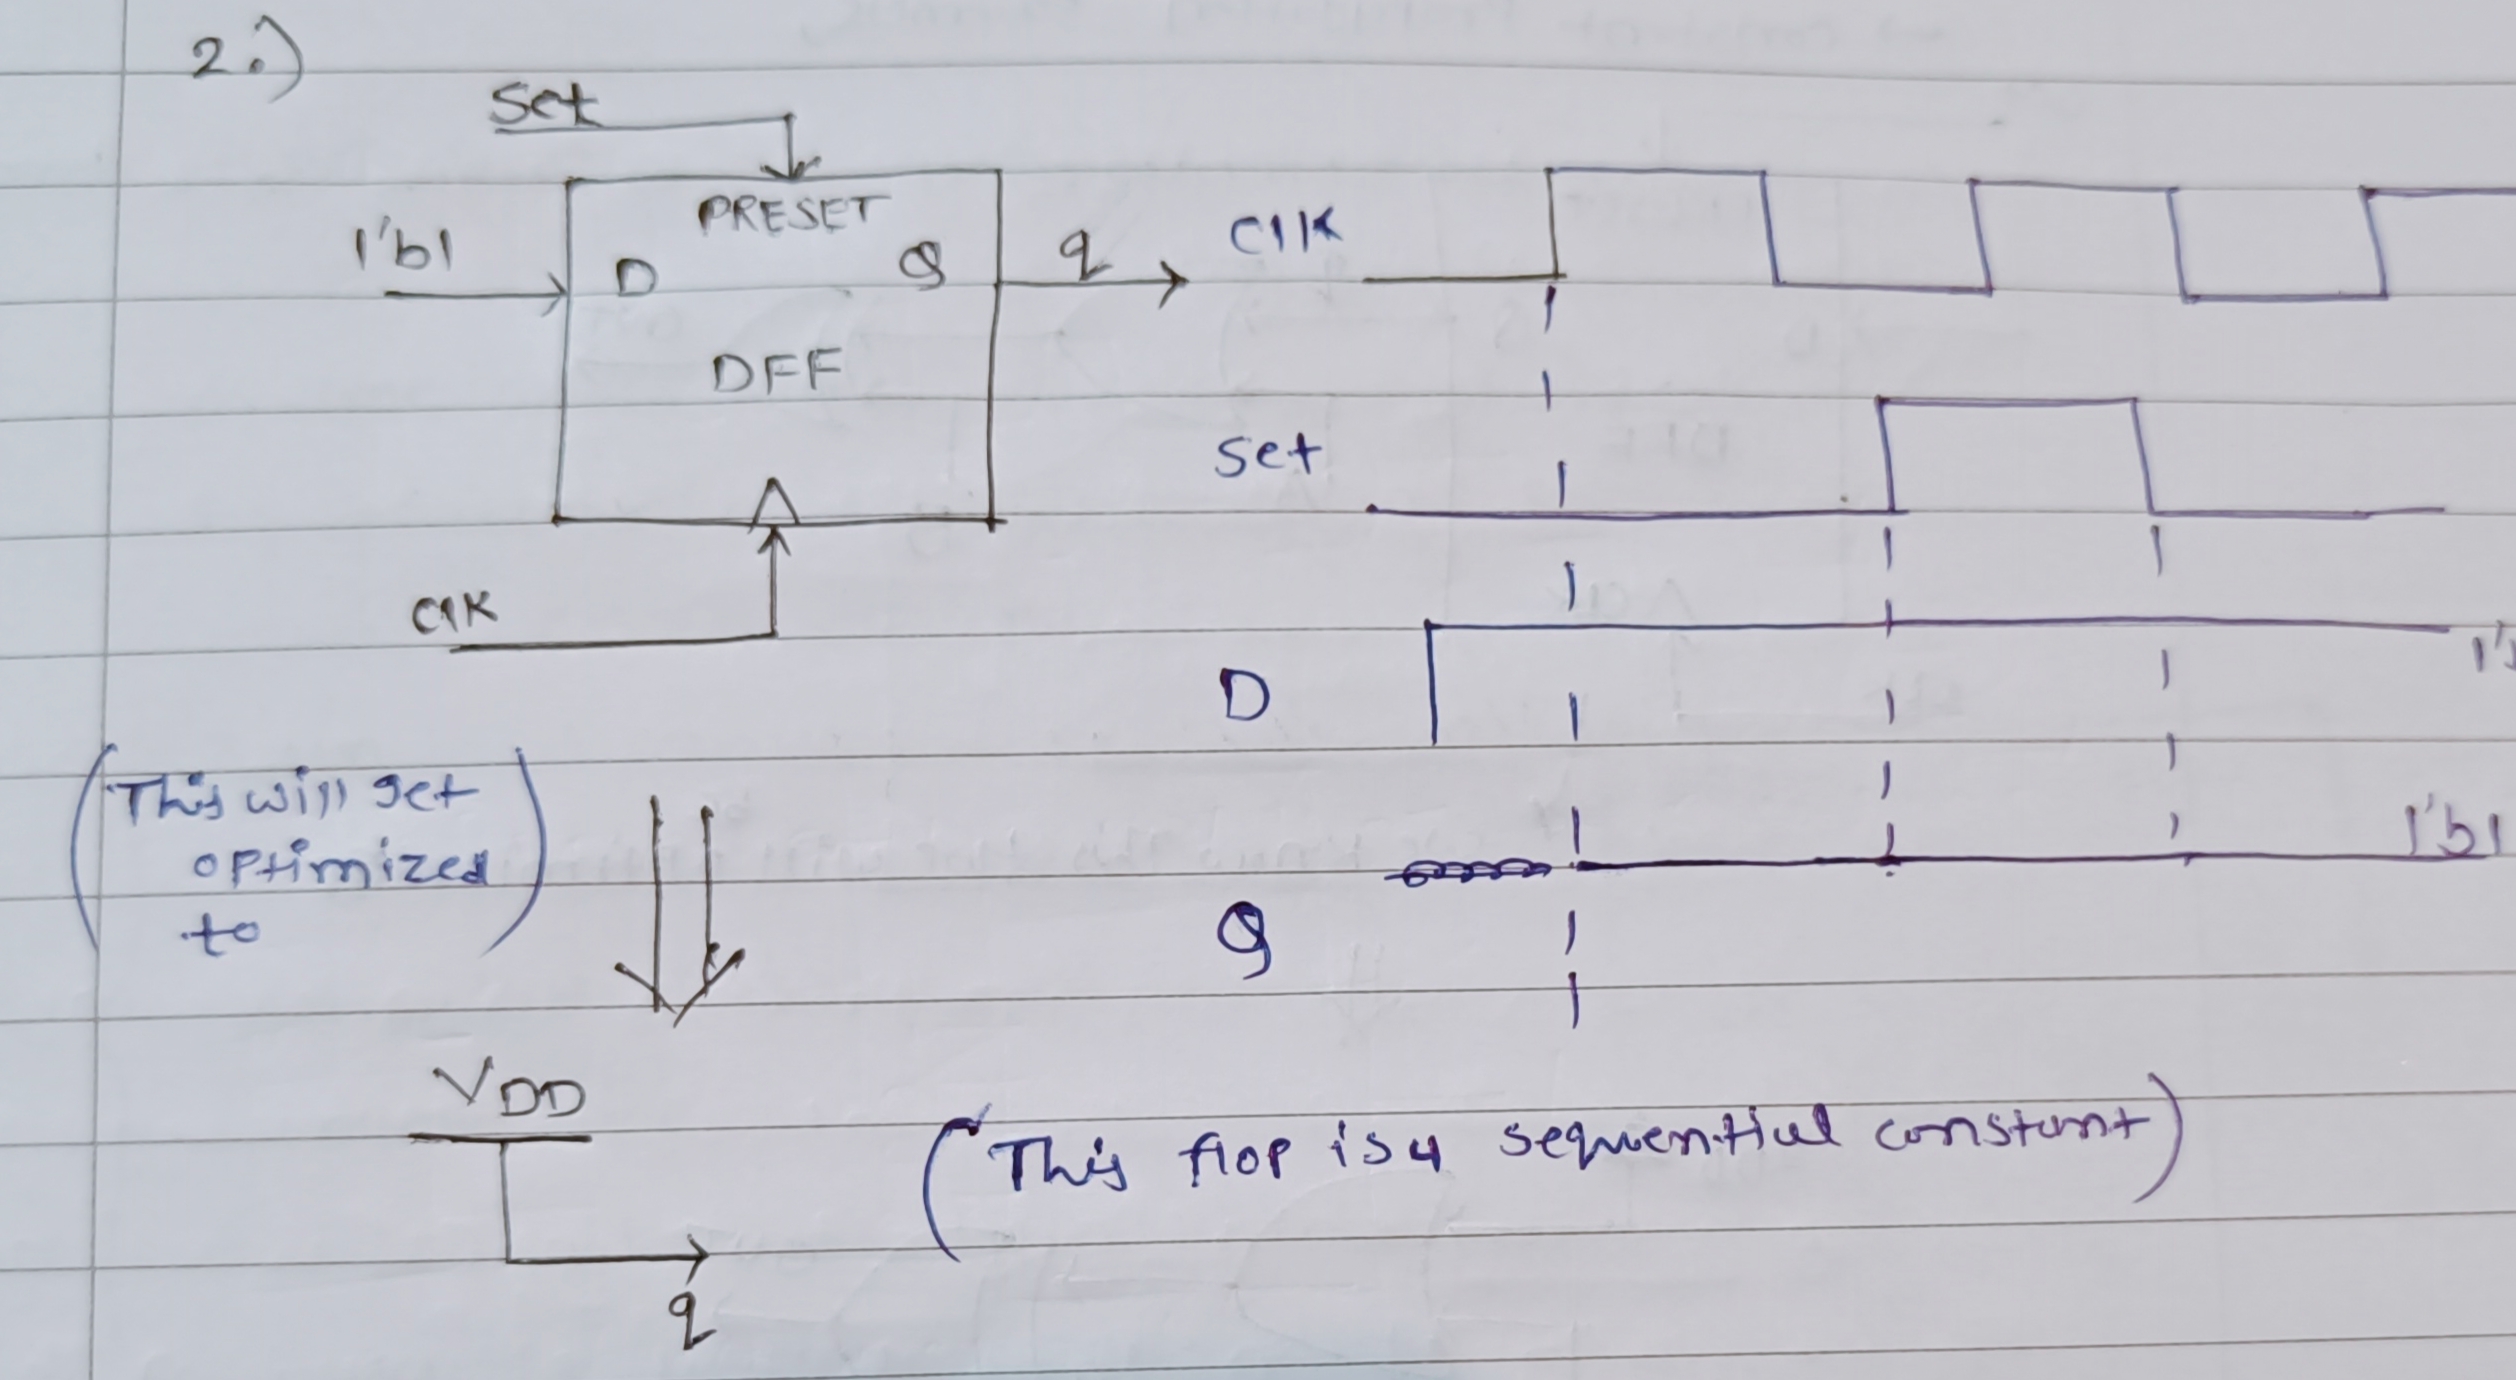 2.)
Set
PRESET
1'b1
D
Q
q
DFF
Clk
Clk
Set
D
1'
(This will get
optimized
to
1'b1
Q
VDD
(This flop is a sequential constant)
q